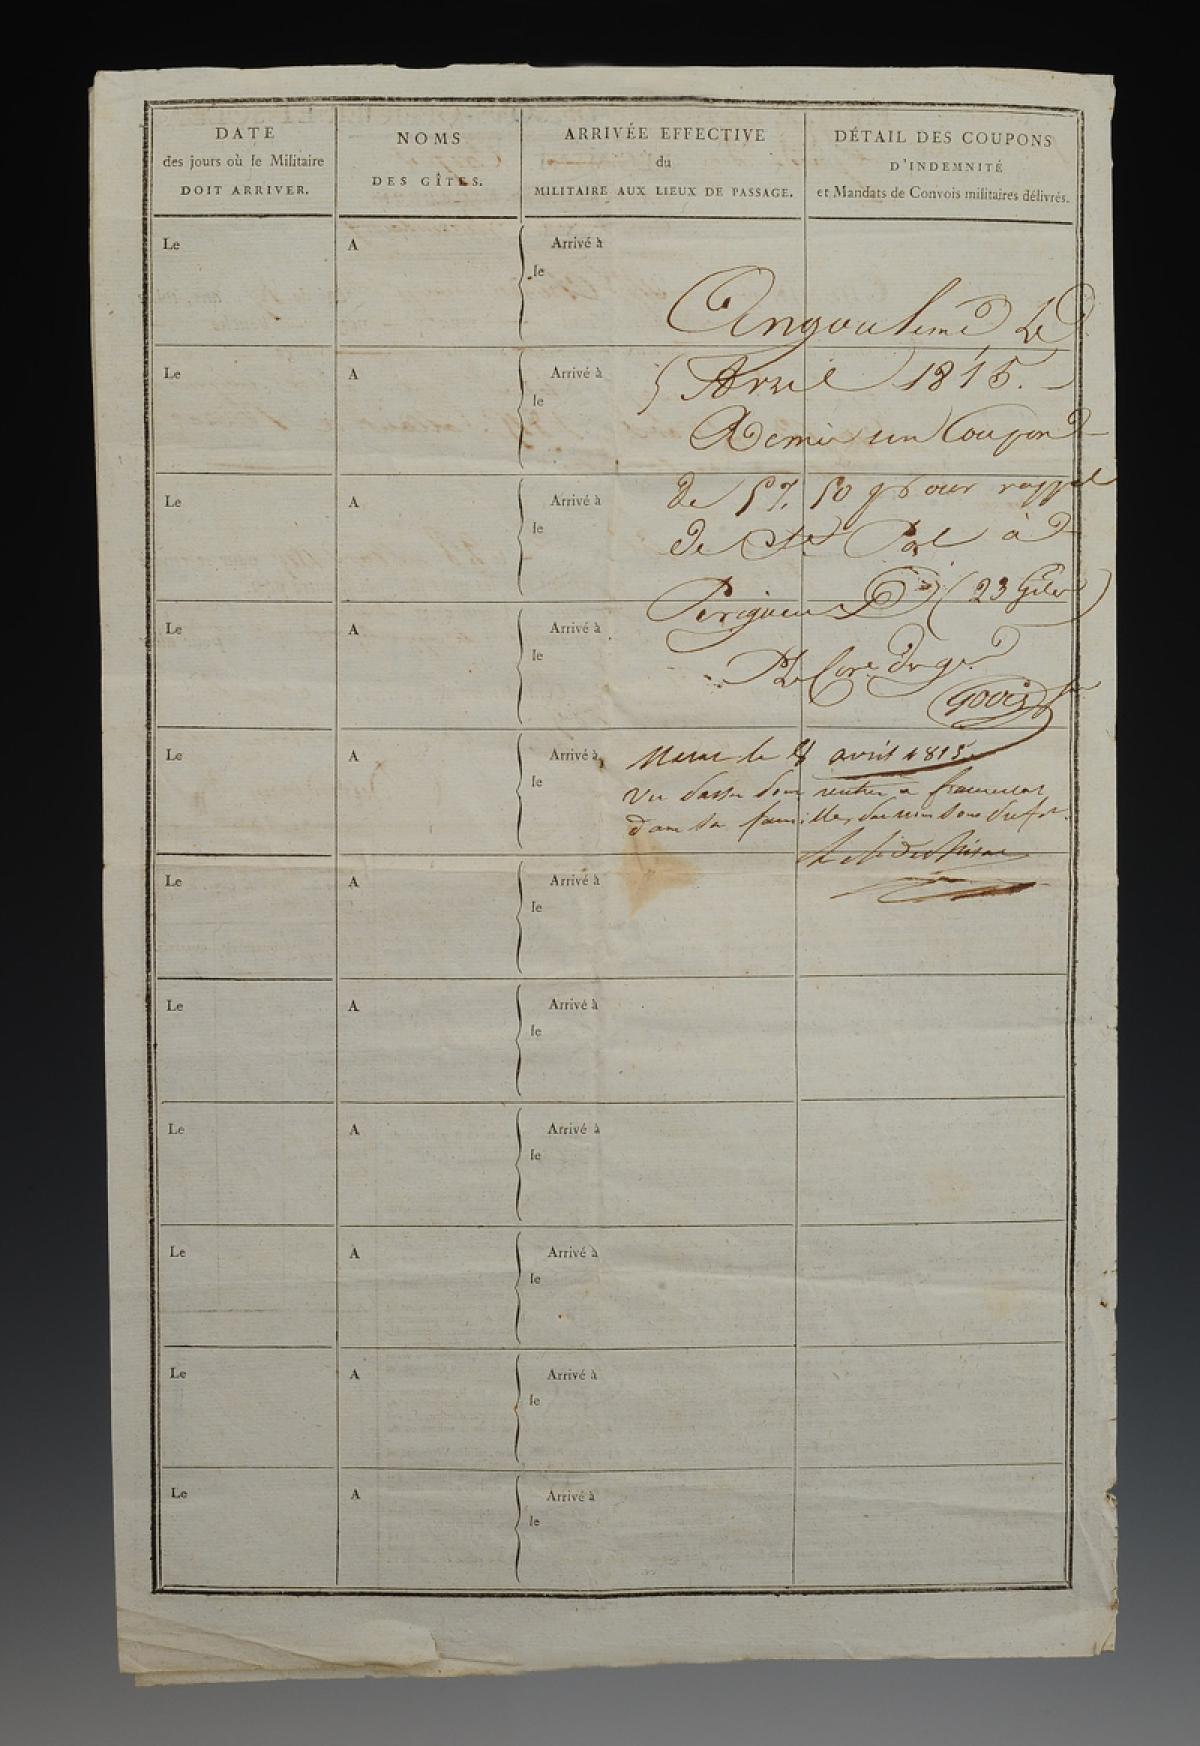 DATE
des jours où le Militaire
DOIT ARRIVER.
NOMS
DES GÎTES.
ARRIVÉE EFFECTIVE
du
MILITAIRE AUX LIEUX DE PASSAGE.
DÉTAIL DES COUPONS
D'INDEMNITÉ
et Mandats de Convois militaires délivrés.
Le A Arrivé à
le
Angoulême Le
Le A Arrivé à
le
5 Avril 1815.
Remis un Coupon
Le A Arrivé à
le
de 57, 50 pour rappel
de St Pol à
Le A Arrivé à
le
Perigueux (23 Gîtes)
Le Core
Le A Arrivé à
le
le 8 avril 1815.
Vu rentrer a
dans sa famille
Le A Arrivé à
le
Le A Arrivé à
le
Le A Arrivé à
le
Le A Arrivé à
le
Le A Arrivé à
le
Le A Arrivé à
le